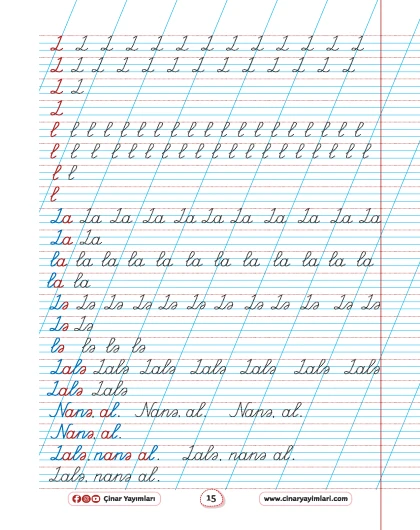 L L L L L L L L L L L L L
L L L L L L L L L L L L L
L L
L
l l l l l l l l l l l l l l l l l l l
l l l l l l l l l l l l l l l l l l l
l l
l
La La La La La La La La La La La
La La
la la la la la la la la la la la la
la la
Lə Lə Lə Lə Lə Lə Lə Lə Lə Lə Lə Lə
Lə Lə
lə lə lə lə
Lalə Lalə Lalə Lalə Lalə Lalə Lalə
Lalə Lalə
Nanə, al. Nanə, al. Nanə, al.
Nanə, al.
Lalə, nanə al. Lalə, nanə al.
Lalə, nanə al.
Çinar Yayımları 15 www.cinaryayimlari.com